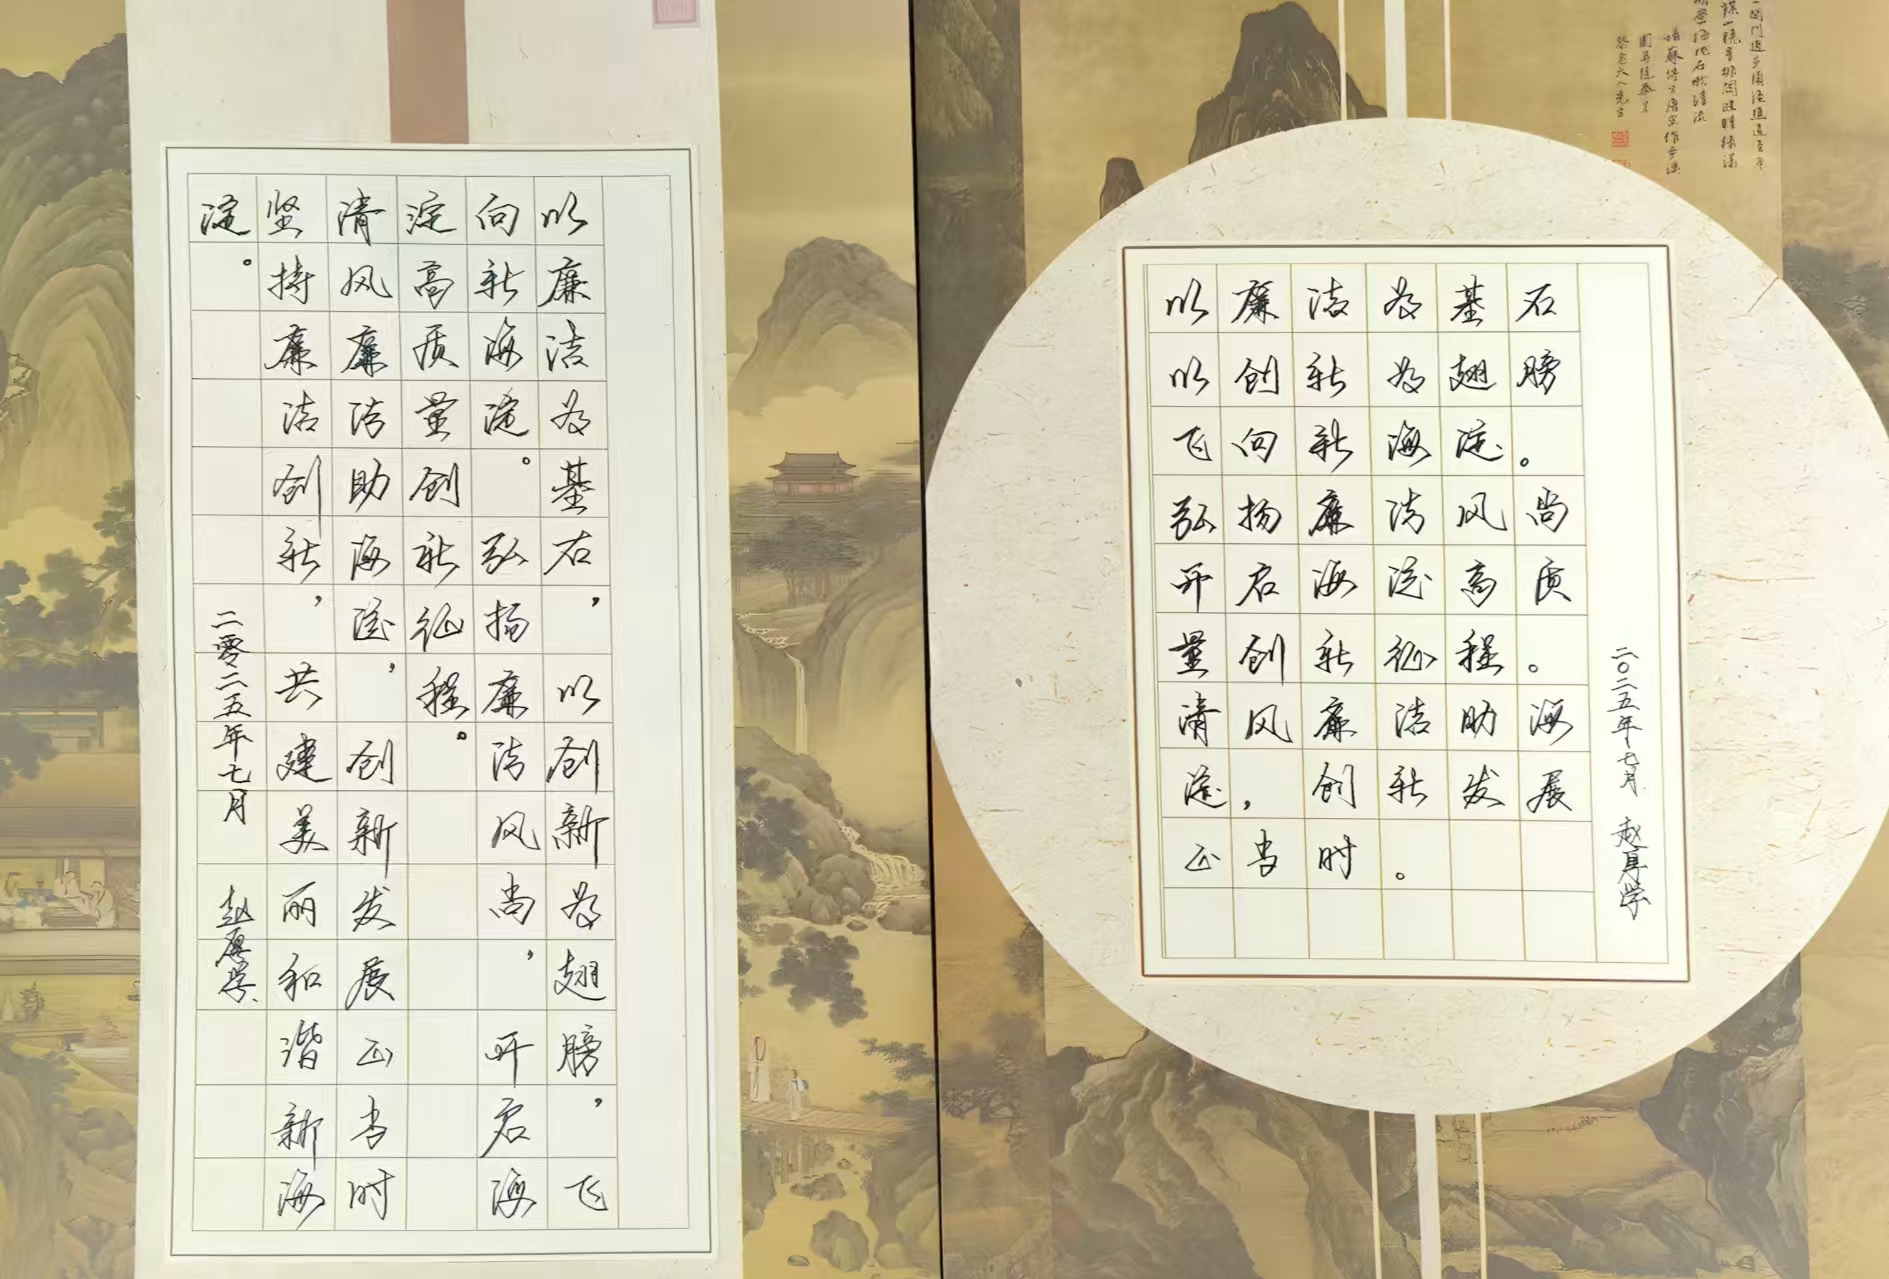 以廉洁为基石，以创新为翅膀，飞
向新海淀。弘扬廉洁风尚，开启海
淀高质量创新征程。
清风廉洁助海淀，创新发展正当时
坚持廉洁创新，共建美丽和谐新海
淀。
二零二五年七月 赵厚学
以廉洁为基石
以创新为翅膀
飞向新海淀。
弘扬廉洁风尚
开启海淀高质
量创新征程。
清风廉洁助海
淀，创新发展
正当时。
二〇二五年七月 赵厚学